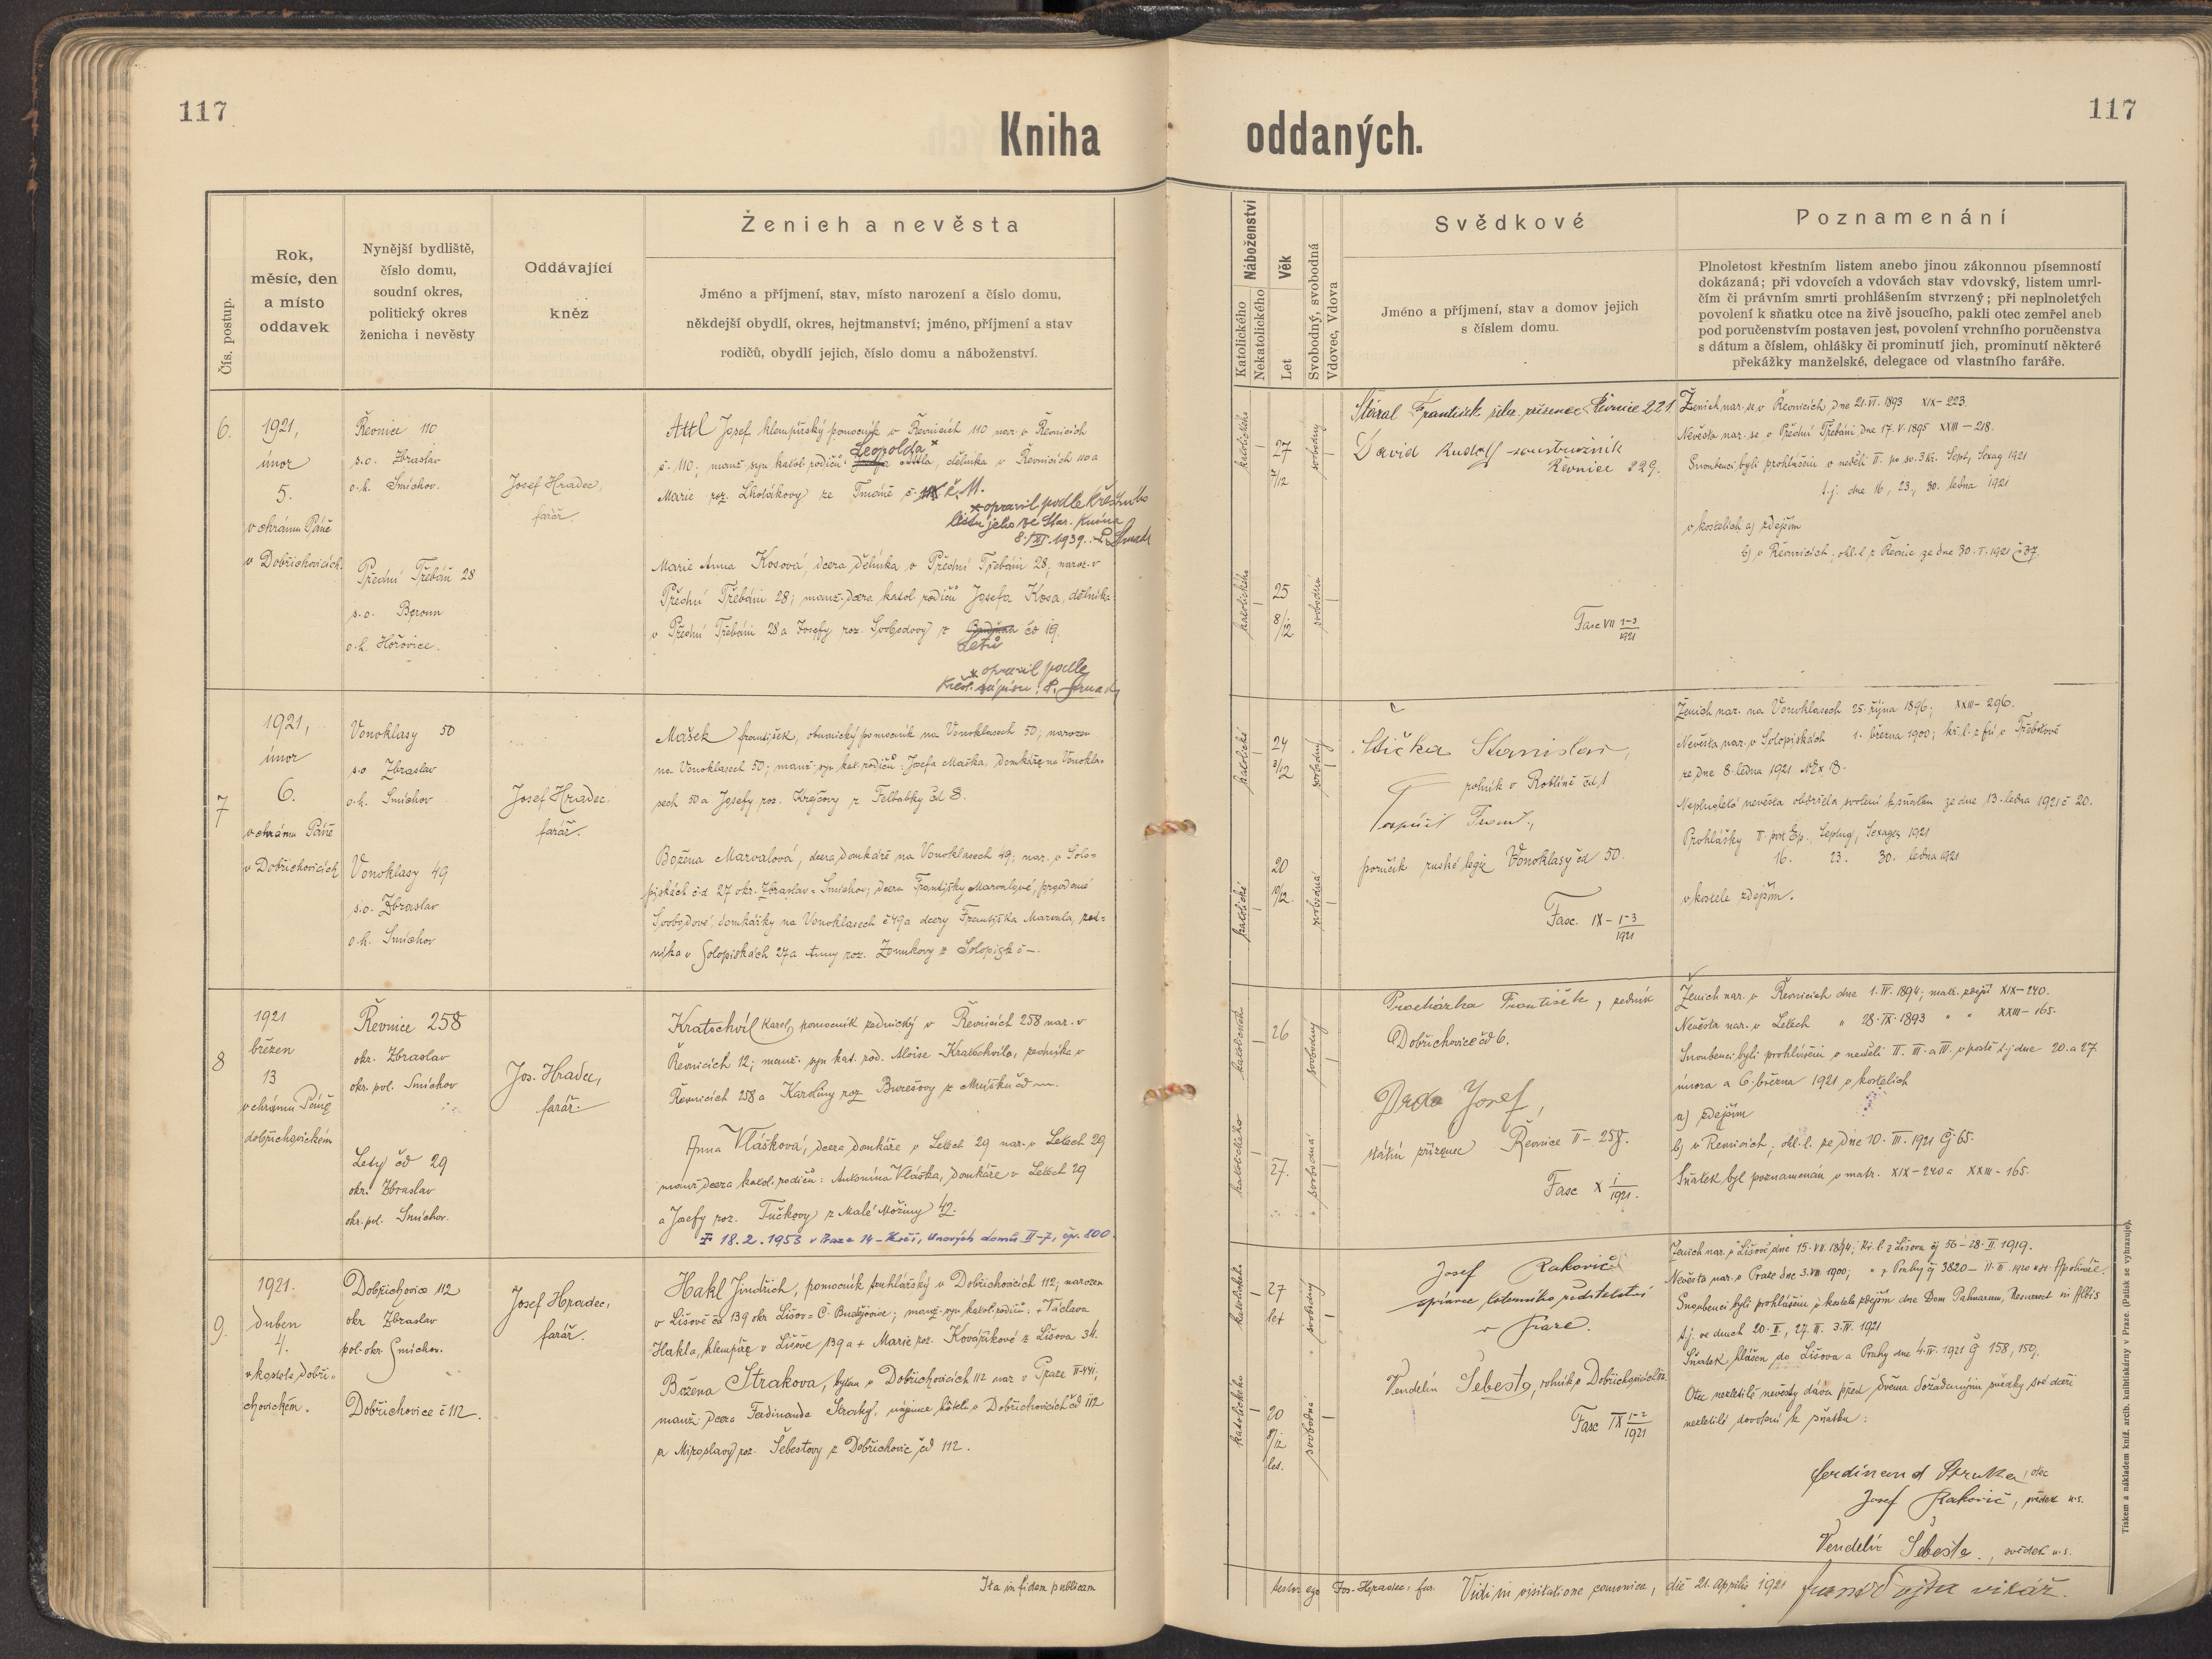 117
117
Kniha oddaných.
Čís. postup.
Rok,
měsíc, den
a místo
oddavek
Nynější bydliště,
číslo domu,
soudní okres,
politický okres
ženicha i nevěsty
Oddávající
kněz
Ženich a nevěsta
Jméno a příjmení, stav, místo narození a číslo domu,
někdejší obydlí, okres, hejtmanství; jméno, příjmení a stav
rodičů, obydlí jejich, číslo domu a náboženství.
Náboženství
Katolického
Nekatolického
Věk
Let
Svobodný, svobodná
Vdovec, Vdova
Svědkové
Jméno a příjmení, stav a domov jejich
s číslem domu.
Poznamenání
Plnoletost křestním listem anebo jinou zákonnou písemností
dokázaná; při vdovcích a vdovách stav vdovský, listem umrl-
čím či právním smrti prohlášením stvrzený; při neplnoletých
povolení k sňatku otce na živě jsoucího, pakli otec zemřel aneb
pod poručenstvím postaven jest, povolení vrchního poručenstva
s dátum a číslem, ohlášky či prominutí jich, prominutí některé
překážky manželské, delegace od vlastního faráře.
6.
1921,
únor
5.
v chrámu Páně
v Dobřichovicích.
Řevnice 110
s.o. Zbraslav
o.h. Smíchov.
Přední Třebáň 28
s.o. Beroun
o.h. Hořovice.
Josef Hradec,
farář.
Attl Josef klempířský pomocník v Řevnicích 110 nar. v Řevnicích
Leopolda ×
č. 110; manž. syn katol. rodičů Attla, dělníka v Řevnicích 110 a
Marie roz. Lhotákovy ze Tmáně č. 11.
× opravil podle křestního
listu jeho ve Star. Knína
8./XI. 1939.
Marie Anna Kosová, dcera dělníka v Přední Třebáni 28; naroz. v
Přední Třebáni 28; manž. dcera katol. rodičů Josefa Kosa, dělníka
v Přední Třebáni 28 a Josefy roz. Svobodovy z čd 19.
Letů
× opravil podle
křest. zápisu
katolického
27
2/12
svobodný
katolického
25
8/12
svobodná
František Řevnice 221.
David Rudolf
Řevnice 229.
Fasc VII 1-3
1921
Ženich nar. se v Řevnicích dne 21. VI. 1893 XIX – 223.
Nevěsta nar. se v Přední Třebáni dne 17. V. 1895 XXIII – 218.
Snoubenci byli prohlášeni v neděli II. po sv. 3 kr. Sept, Sexag 1921
t.j. dne 16., 23., 30. ledna 1921
v kostelích a) zdejším
b) v Řevnicích, ohl. l. z Řevnic ze dne 30. I. 1921 č 37.
7
1921,
únor
6.
v chrámu Páně
v Dobřichovicích
Vonoklasy 50
s.o Zbraslav
o.h. Smíchov
Vonoklasy 49
s.o. Zbraslav
o.h. Smíchov
Josef Hradec,
farář.
Mašek František, obuvnický pomocník na Vonoklasech 50; narozen
na Vonoklasech 50; manž. syn kat. rodičů: Josefa Maška, domkáře na Vonokla-
sech 50 a Josefy roz. Krejčovy z Felbabky čd 8.
Božena Marvalová, dcera domkáře na Vonoklasech 49; nar. v Solo-
piskách čd 27 okr. Zbraslav - Smíchov; dcera Františky Marvalové, provdané
Svobodové, domkářky na Vonoklasech č 49 a dcery Františka Marvala,
níka v Solopiskách 27 a Anny roz. Zemkovy z Solopisk č –.
katolické
24
3/12
svobodný
katolické
20
10/12
svobodná
Stanislav,
rolník v Roblíně čd 1
Frant.,
poručík ruské legie Vonoklasy čd 50.
Fasc. IX – 1-3
1921
Ženich nar. na Vonoklasech 25. října 1896; XXIII – 296.
Nevěsta nar. v Solopiskách 1. března 1900; kř. l. z fú v Třebotově
ze dne 8. ledna 1921 18.
Neplnoletá nevěsta obdržela svolení k sňatku ze dne 13. ledna 1921 č 20.
Prohlášky II. post Ep., Septug, Sexages 1921
16. 23. 30. ledna 1921
v kostele zdejším.
8
1921
březen
13
v chrámu Páně
dobřichovickém
Řevnice 258
okr. Zbraslav
okr. pol. Smíchov
Lety čd 29
okr. Zbraslav
okr. pol. Smíchov.
Jos. Hradec,
farář.
Kratochvíl Karel, pomocník zednický v Řevnicích 258 nar. v
Řevnicích 12; manž. syn kat. rod. Aloise Kratochvíla, zedníka v
Řevnicích 258 a Karolíny roz. Burešovy z čd —.
Anna Vlášková, dcera domkáře v Letech 29 nar. v Letech 29
manž dcera katol. rodičů: Antonína Vláška, domkáře v Letech 29
a Josefy roz. Tučkovy z Malé Mořiny 42.
18.2.1953 v Praze 14 – Krči, U nových domů II-7, čp. 800.
katolických
26
svobodný
katolického
27.
svobodná
Procházka František, zedník
Dobřichovice čd 6.
Josef,
státní zřízenec Řevnice II – 258.
Fasc X 1
1921.
Ženich nar. v Řevnicích dne 1. IV. 1894; matr. zdejší XIX – 240.
Nevěsta nar. v Letech " 28. IX. 1893 " " XXIII – 165.
Snoubenci byli prohlášeni v neděli II. III. a IV. v postě t.j. dne 20. a 27.
února a 6. března 1921 v kostelích
a) zdejším
b) v Řevnicích; ohl. l. ze dne 10. III. 1921 čj 65.
Sňatek byl poznamenán v matr. XIX – 240 a XXIII – 165.
9.
1921.
duben
4.
v kostele dobři-
chovickém.
Dobřichovice 112
okr Zbraslav
pol. okr. Smíchov.
Dobřichovice č 112.
Josef Hradec,
farář.
Hakl Jindřich, pomocník truhlářský v Dobřichovicích 112; narozen
v Lišově čd 139 okr Lišov – Č. Budějovice; manž. syn katol. rodičů: + Václava
Hakla, klempíře v Lišově 139 a + Marie roz. Kovaříkové z Lišova 34.
Božena Strakova, bytem v Dobřichovicích 112 nar v Praze II-441;
manž. dcera Ferdinanda Straky, nájemce hotelu v Dobřichovicích čd 112
a Miroslavy roz. Šebestovy z Dobřichovic čd 112.
katolického
27
let
svobodný
katolického
20
8/12
let.
svobodná
Josef Rakovič
správce ředitelství
v Praze.
Vendelín Šebesta, rolník v Dobřichovicích
Fasc IX 1-2
1921
Ženich nar. v Lišově dne 15. VII. 1894; kř. l. z Lišova čj 56 – 28. II. 1919.
Nevěsta nar. v Praze dne 3. VIII 1900; " z Prahy čj 3820 – 11. II. 1920
Snoubenci byli prohlášeni v kostele zdejším dne Dom Palmarum, Resurrect in Albis
t.j. ve dnech 20. II., 27. III. 3. IV. 1921
Sňatek hlášen do Lišova a Prahy dne 4. IV. 1921 čj 158, 159.
Otec nezletilé nevěsty dává před dvěma dožádanými svědky své dceři
nezletilé dovolení k sňatku:
Ferdinand Straka, otec
Josef Rakovič, svědek u.s.
Vendelín Šebesta, svědek u.s.
Ita in fidem publicam
testor ego Jos. Hradec, far. Vidi in visitatione canonica, die 21. Aprilis 1921 vikář.
Tiskem a nákladem kníž. arcib. knihtiskárny v Praze. (Patisk se vyhrazuje).